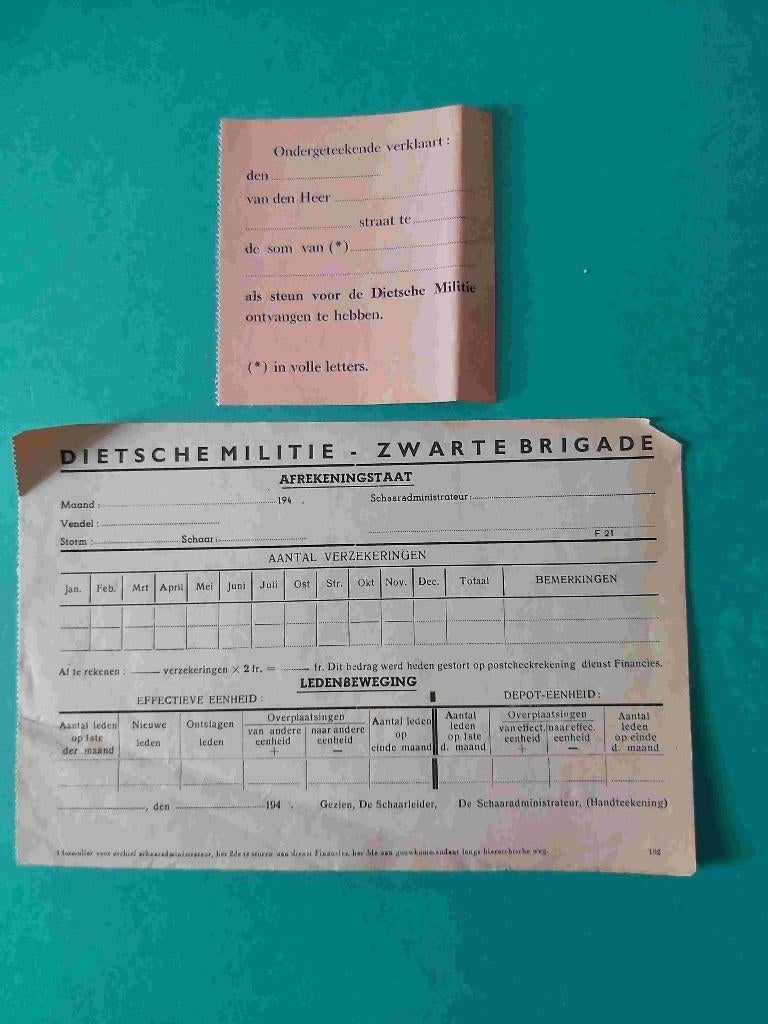 Ondergeteekende verklaart :
den
van den Heer
straat te
de som van (*)
als steun voor de Dietsche Militie
ontvangen te hebben.
(*) in volle letters.
DIETSCHE MILITIE - ZWARTE BRIGADE
AFREKENINGSTAAT
Maand : 194 . Schaaradministrateur :
Vendel :
Storm : Schaar : F 21
AANTAL VERZEKERINGEN
Jan. Feb. Mrt April Mei Juni Juli Ost Str. Okt Nov. Dec. Totaal BEMERKINGEN
Af te rekenen : verzekeringen × 2 fr. = fr. Dit bedrag werd heden gestort op postcheckrekening dienst Financies.
LEDENBEWEGING
EFFECTIEVE EENHEID : DEPOT-EENHEID :
Aantal leden op 1ste der maand Nieuwe leden Ontslagen leden Overplaatsingen van andere eenheid + naar andere eenheid — Aantal leden op einde maand Aantal leden op 1ste d. maand Overplaatsingen van effect. eenheid + naar effec. eenheid — Aantal leden op einde d. maand
, den 194 . Gezien, De Schaarleider, De Schaaradministrateur, (Handteekening)
1 formulier voor archief schaaradministrateur, het 2de te sturen aan dienst Financies, het 3de aan gouwkommandant langs hierarchische weg. 192